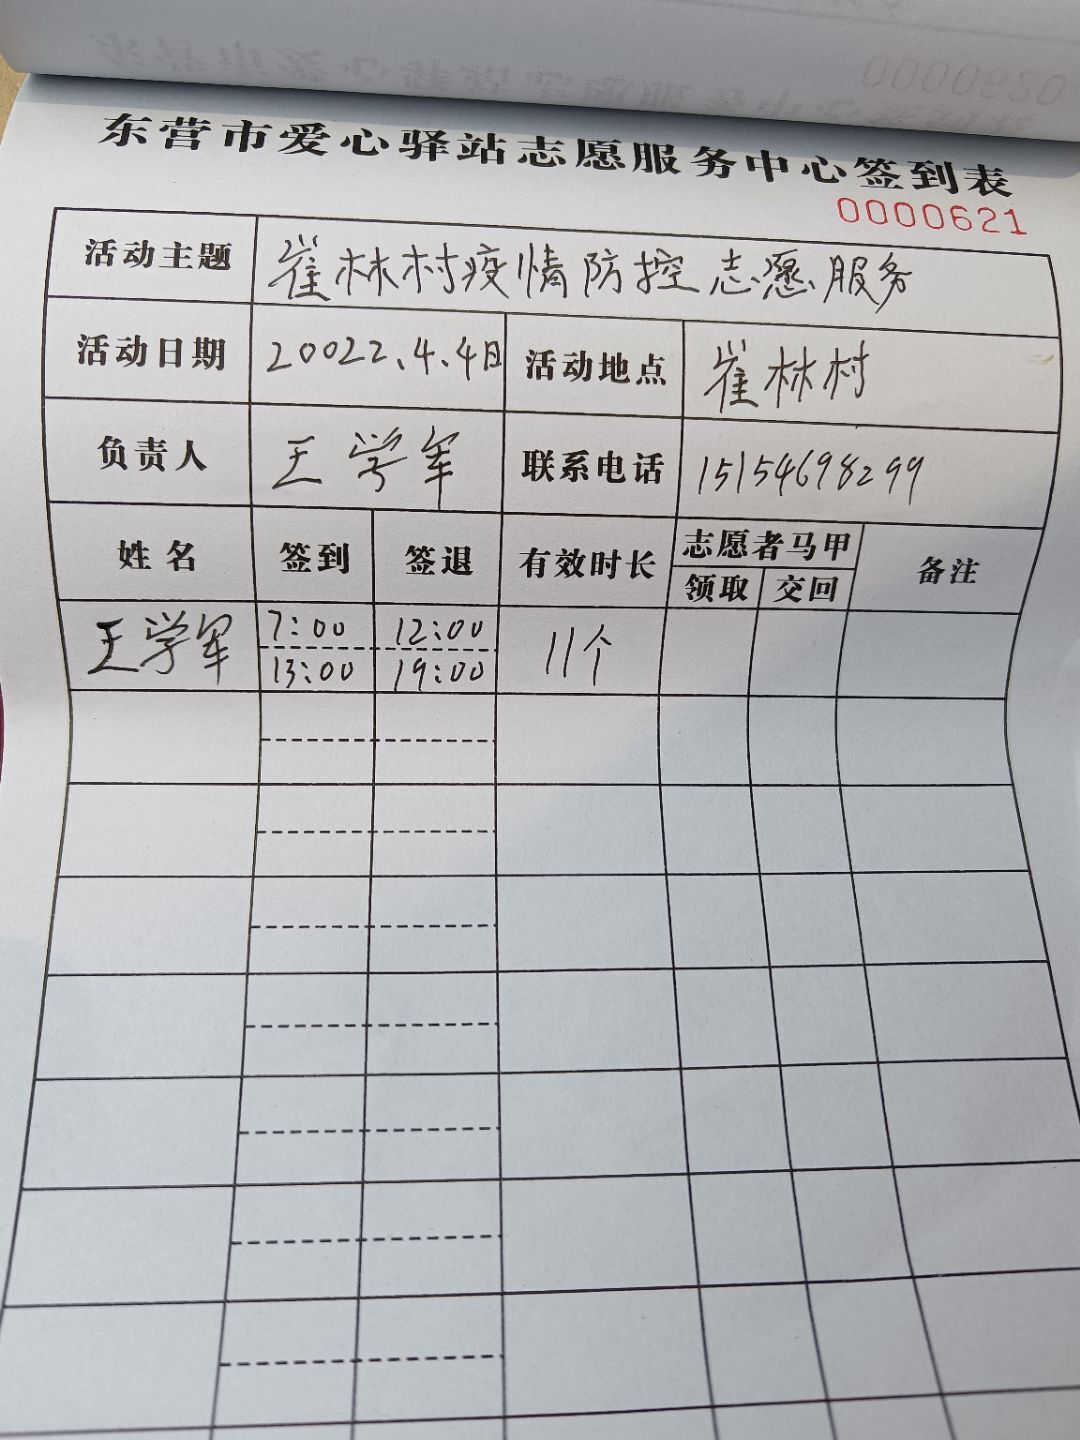 东营市爱心驿站志愿服务中心签到表
0000621
活动主题 崔林村疫情防控志愿服务
活动日期 20022.4.4日 活动地点 崔林村
负责人 王学军 联系电话 15154698299
姓名 签到 签退 有效时长 志愿者马甲 备注
领取 交回
王学军 7:00 12:00 11个
13:00 19:00